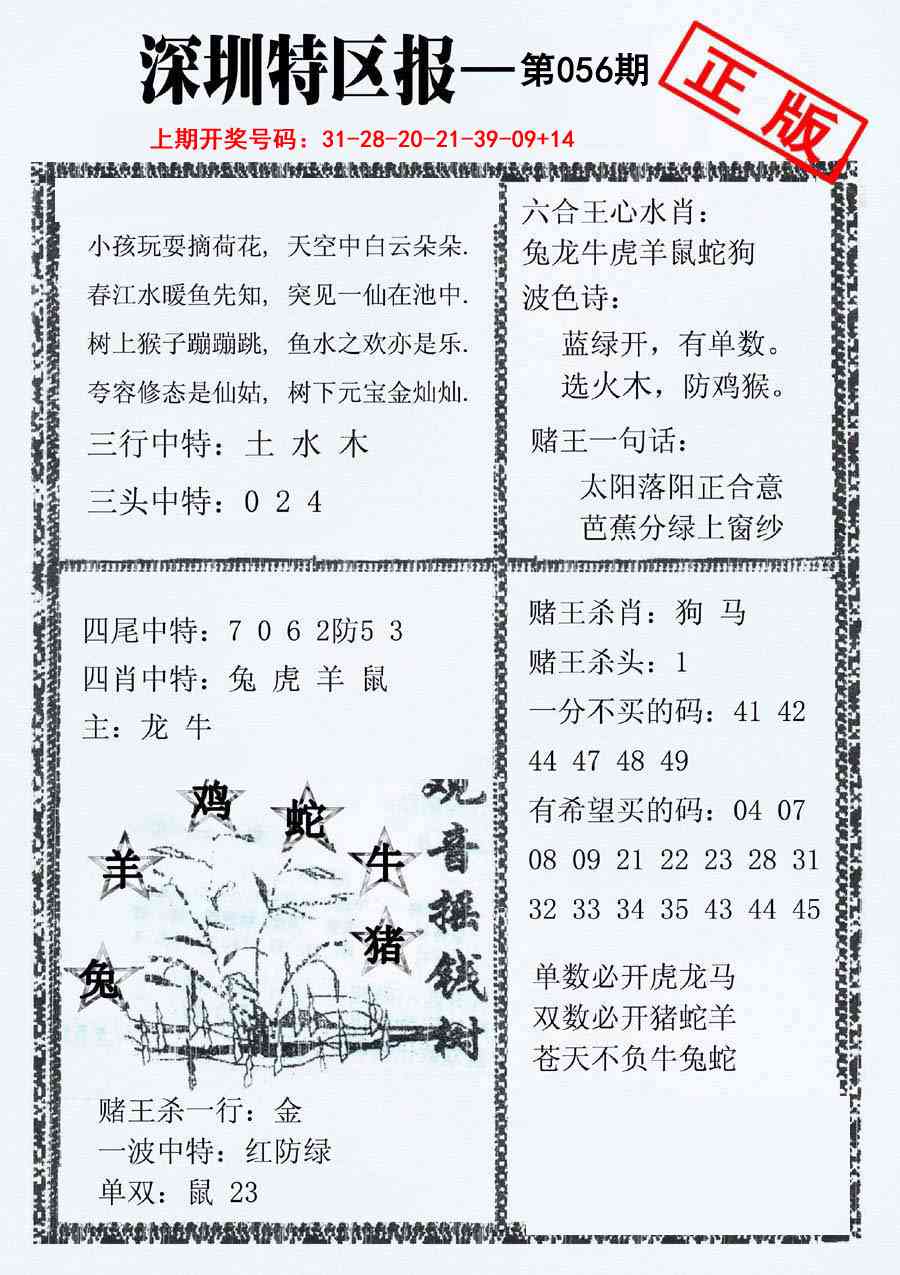 深圳特区报—第056期
正版
上期开奖号码：31-28-20-21-39-09+14
小孩玩耍摘荷花，天空中白云朵朵.
春江水暖鱼先知，突见一仙在池中.
树上猴子蹦蹦跳，鱼水之欢亦是乐.
夸容修态是仙姑，树下元宝金灿灿.
三行中特：土 水 木
三头中特：0 2 4
六合王心水肖：
兔龙牛虎羊鼠蛇狗
波色诗：
蓝绿开，有单数。
选火木，防鸡猴。
赌王一句话：
太阳落阳正合意
芭蕉分绿上窗纱
四尾中特：7 0 6 2防5 3
四肖中特：兔 虎 羊 鼠
主：龙 牛
鸡
蛇
羊
牛
猪
兔
观音摇钱树
赌王杀一行：金
一波中特：红防绿
单双：鼠 23
赌王杀肖：狗 马
赌王杀头：1
一分不买的码：41 42
44 47 48 49
有希望买的码：04 07
08 09 21 22 23 28 31
32 33 34 35 43 44 45
单数必开虎龙马
双数必开猪蛇羊
苍天不负牛兔蛇